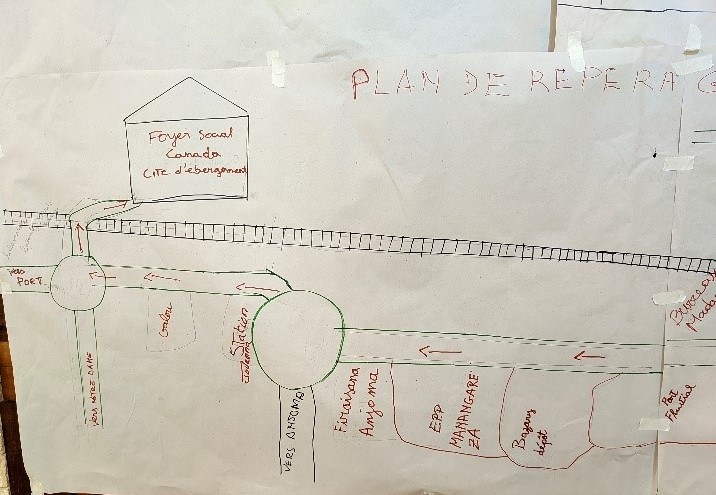 PLAN DE REPERAG
Foyer Social
Canada
CITE d'ebergement
vers
PORT
VERS NOTRE DAME
Galou
Station
VERS ANJOMA
Firaisana
Anjoma
EPP
MANANGARE
ZA
Bazary
dépôt
Port
Fluvial